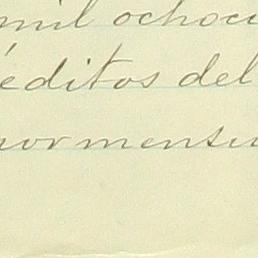 mil ochoci
éditos del
por mensu